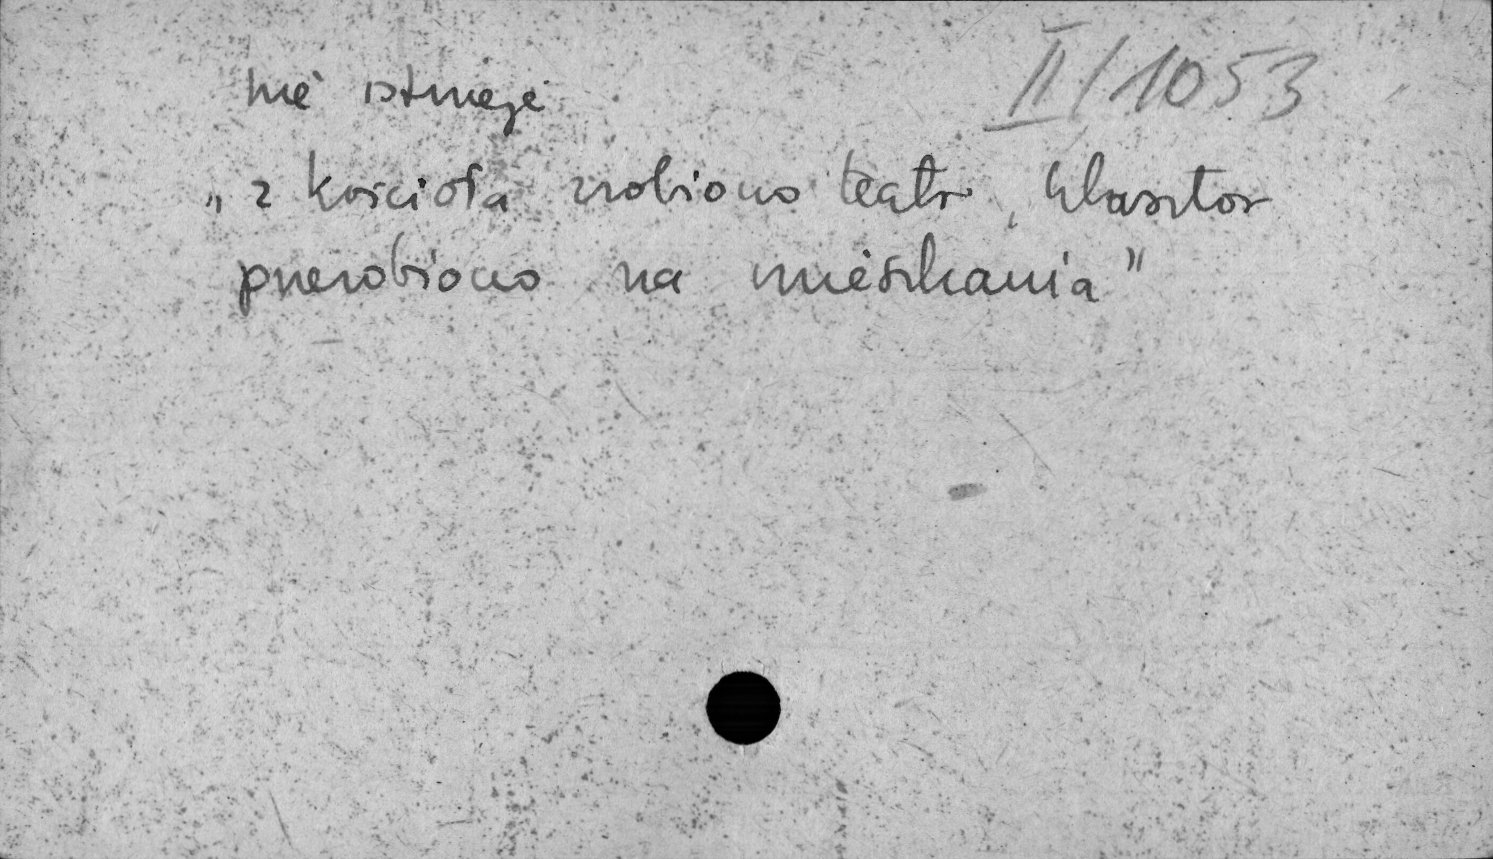 II/1053
nie istnieje
„z kościoła zrobiono teatr, klasztor
przerobiono na mieszkania”